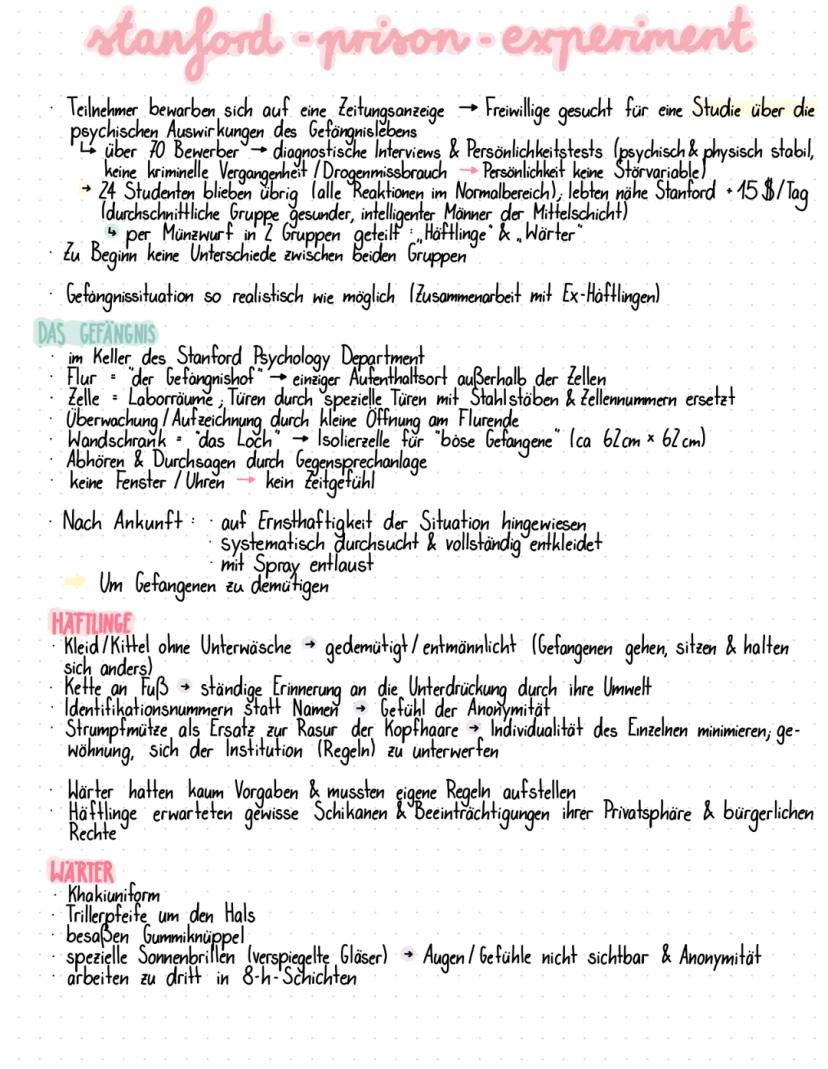 stanford-prison-experiment
· Teilnehmer bewarben sich auf eine Zeitungsanzeige → Freiwillige gesucht für eine Studie über die
psychischen Auswirkungen des Gefängnislebens
↳ über 70 Bewerber → diagnostische Interviews & Persönlichkeitstests (psychisch & physisch stabil,
keine kriminelle Vergangenheit / Drogenmissbrauch → Persönlichkeit keine Störvariable)
→ 24 Studenten blieben übrig (alle Reaktionen im Normalbereich); lebten nähe Stanford + 15 $/Tag
(durchschnittliche Gruppe gesunder, intelligenter Männer der Mittelschicht)
↳ per Münzwurf in 2 Gruppen geteilt : „Häftlinge“ & „Wärter“
· Zu Beginn keine Unterschiede zwischen beiden Gruppen
· Gefängnissituation so realistisch wie möglich (Zusammenarbeit mit Ex-Häftlingen)
DAS GEFÄNGNIS
· im Keller des Stanford Psychology Department
· Flur = "der Gefängnishof" → einziger Aufenthaltsort außerhalb der Zellen
· Zelle = Laborräume ; Türen durch spezielle Türen mit Stahlstäben & Zellennummern ersetzt
· Überwachung / Aufzeichnung durch kleine Öffnung am Flurende
· Wandschrank = "das Loch" → Isolierzelle für "böse Gefangene" (ca 62cm × 62cm)
· Abhören & Durchsagen durch Gegensprechanlage
· keine Fenster / Uhren → kein Zeitgefühl
· Nach Ankunft : · auf Ernsthaftigkeit der Situation hingewiesen
· systematisch durchsucht & vollständig entkleidet
· mit Spray entlaust
→ Um Gefangenen zu demütigen
HÄFTLINGE
· Kleid / Kittel ohne Unterwäsche → gedemütigt / entmännlicht (Gefangenen gehen, sitzen & halten
sich anders)
· Kette an Fuß → ständige Erinnerung an die Unterdrückung durch ihre Umwelt
· Identifikationsnummern statt Namen → Gefühl der Anonymität
· Strumpfmütze als Ersatz zur Rasur der Kopfhaare → Individualität des Einzelnen minimieren; ge-
wöhnung, sich der Institution (Regeln) zu unterwerfen
· Wärter hatten kaum Vorgaben & mussten eigene Regeln aufstellen
· Häftlinge erwarteten gewisse Schikanen & Beeinträchtigungen ihrer Privatsphäre & bürgerlichen
Rechte
WÄRTER
· Khakiuniform
· Trillerpfeife um den Hals
· besaßen Gummiknüppel
· spezielle Sonnenbrillen (verspiegelte Gläser) → Augen / Gefühle nicht sichtbar & Anonymität
· arbeiten zu dritt in 8-h-Schichten